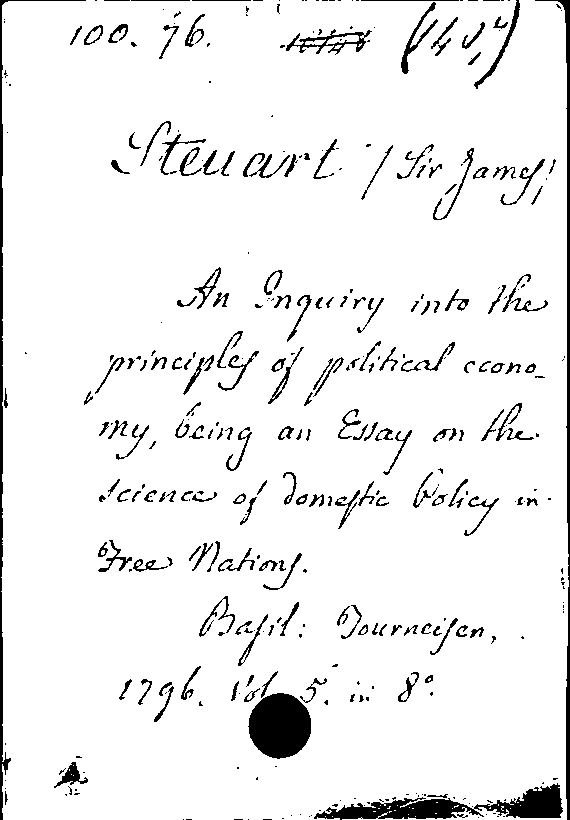 100. 76.
Steuart / Sir James /
An Inquiry into the
principles of political econo-
my, being an Essay on the
science of domestic Policy in
Free Nations.
Basil: Tourneisen,
1796. Vol 5. in 8°.